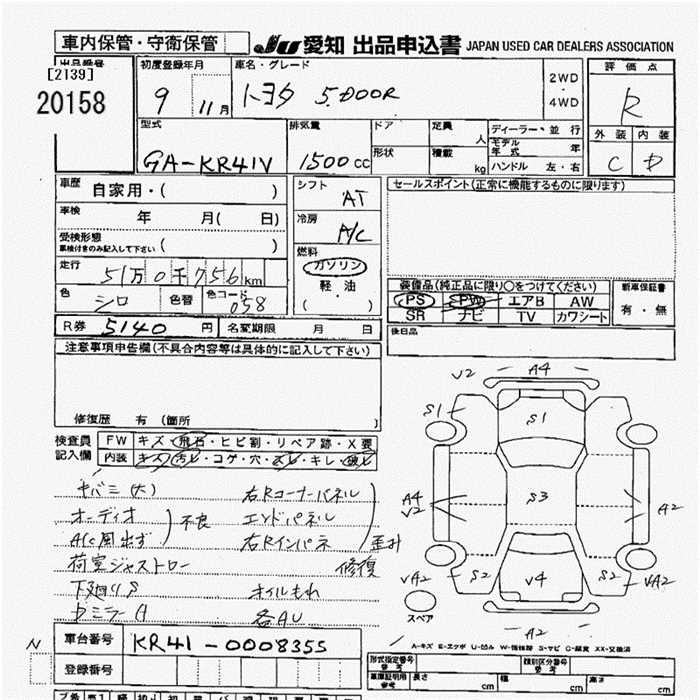 車内保管・守衛保管
JU 愛知 出品申込書 JAPAN USED CAR DEALERS ASSOCIATION
出品番号 初度登録年月 車名・グレード 2WD・4WD 評価点
[2139]
20158 9 11月 トヨタ 5.DOOR R
型式 排気量 ドア 定員 人 ディーラー・並行 外装 内装
GA-KR41V 1500cc 形状 積載 kg モデル年式 年 C D
ハンドル 左・右
車歴 自家用・( ) シフト AT セールスポイント(正常に機能するものに限ります)
車検 年 月( 日) 冷房 A/C
受検形態 車検付きのみ記入して下さい ( )
燃料 ガソリン
走行 51万0千756km 軽・油
装備品(純正品に限り○をつけてください) 新車保証書
色 シロ 色替 色コード 058 ( )
PS PW エアB AW 有・無
SR ナビ TV カワシート
R券 5140円 名変期限 月 日
後日品
注意事項申告欄(不具合内容等は具体的に記入して下さい)
修復歴 有 (箇所 )
検査員記入欄 FW キズ・飛石・ヒビ割・リペア跡・X要
内装 キズ・汚レ・コゲ・穴・スレ・キレ・破レ
キバミ(大) 右Rコーナーパネル
オーディオ 不良 エンドパネル
A/C風出ず 右Rインパネ
荷室ジャストロー 修復
下廻りS オイルもれ
各AU
V2 A4
S1 S1
A4 V2 S3 A2
VA2 S2 V4 S2 VA2
スペア
A2
N 車台番号 KR41-0008355
A-キズ E-エクボ U-凹み W-補修跡 S-サビ C-腐食 XX-交換済
登録番号
形式指定番号 参考 類別区分番号 参考
車庫証明用 参考 長さ cm 幅 cm 高さ cm